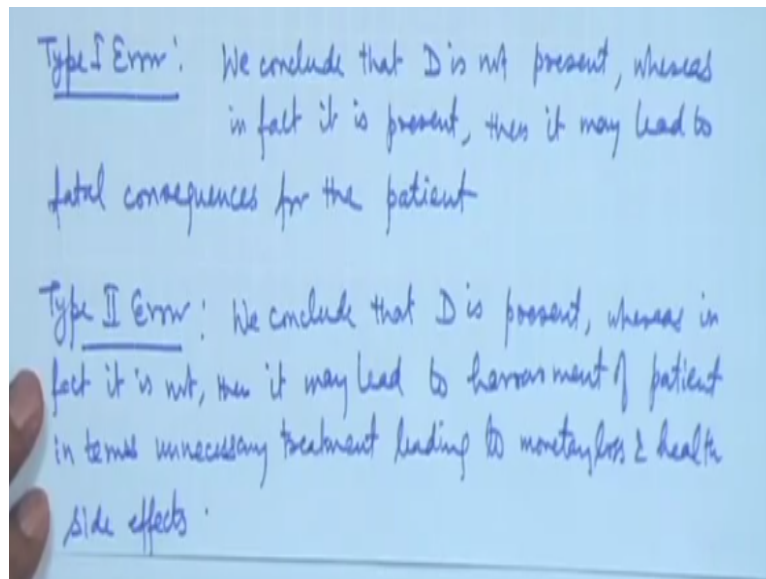 Type I Error: We conclude that D is not present, whereas
in fact it is present, then it may lead to
fatal consequences for the patient
Type II Error: We conclude that D is present, whereas in
fact it is not, then it may lead to harrasment of patient
in terms unnecessary treatment leading to monetary loss & health
side effects.